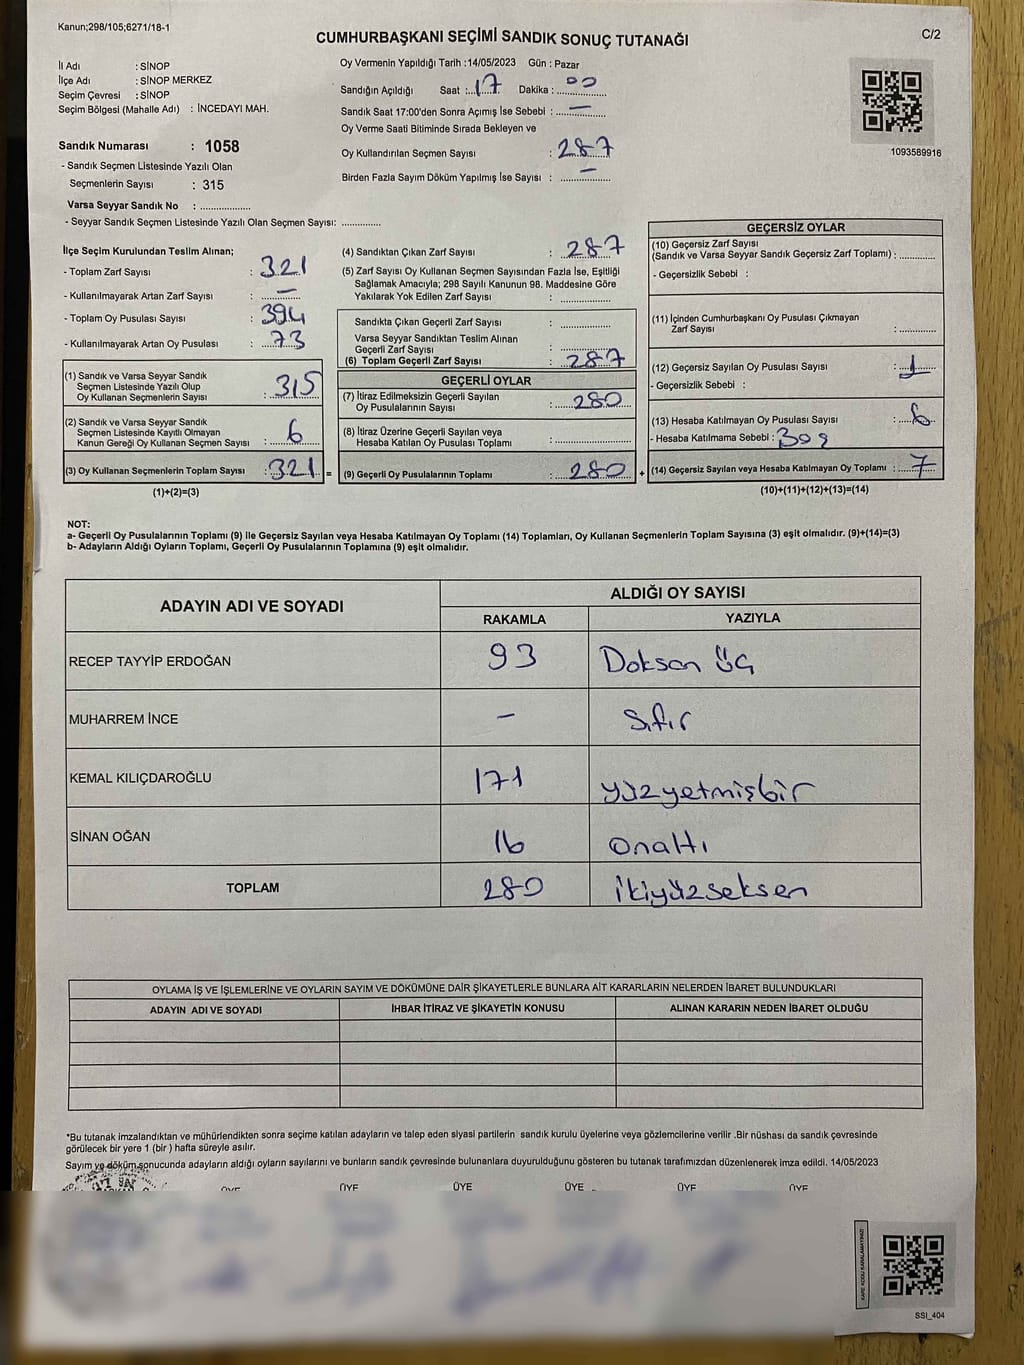 Kanun;298/105;6271/18-1
C/2
CUMHURBAŞKANI SEÇİMİ SANDIK SONUÇ TUTANAĞI
İl Adı : SİNOP
İlçe Adı : SİNOP MERKEZ
Seçim Çevresi : SİNOP
Seçim Bölgesi (Mahalle Adı) : İNCEDAYI MAH.
Sandık Numarası : 1058
- Sandık Seçmen Listesinde Yazılı Olan
Seçmenlerin Sayısı : 315
Varsa Seyyar Sandık No : ....................
- Seyyar Sandık Seçmen Listesinde Yazılı Olan Seçmen Sayısı: ...............
Oy Vermenin Yapıldığı Tarih :14/05/2023 Gün : Pazar
Sandığın Açıldığı Saat :..17 Dakika :..00
Sandık Saat 17:00'den Sonra Açımış İse Sebebi : —
Oy Verme Saati Bitiminde Sırada Bekleyen ve
Oy Kullandırılan Seçmen Sayısı : 287
Birden Fazla Sayım Döküm Yapılmış İse Sayısı : —
1093589916
İlçe Seçim Kurulundan Teslim Alınan;
- Toplam Zarf Sayısı : 321
- Kullanılmayarak Artan Zarf Sayısı : —
- Toplam Oy Pusulası Sayısı : 394
- Kullanılmayarak Artan Oy Pusulası : 73
(1) Sandık ve Varsa Seyyar Sandık
Seçmen Listesinde Yazılı Olup
Oy Kullanan Seçmenlerin Sayısı : 315
(2) Sandık ve Varsa Seyyar Sandık
Seçmen Listesinde Kayıtlı Olmayan
Kanun Gereği Oy Kullanan Seçmen Sayısı : 6
(3) Oy Kullanan Seçmenlerin Toplam Sayısı : 321 =
(1)+(2)=(3)
(4) Sandıktan Çıkan Zarf Sayısı : 287
(5) Zarf Sayısı Oy Kullanan Seçmen Sayısından Fazla İse, Eşitliği
Sağlamak Amacıyla; 298 Sayılı Kanunun 98. Maddesine Göre
Yakılarak Yok Edilen Zarf Sayısı : ....................
Sandıkta Çıkan Geçerli Zarf Sayısı : ....................
Varsa Seyyar Sandıktan Teslim Alınan
Geçerli Zarf Sayısı : ....................
(6) Toplam Geçerli Zarf Sayısı : 287
GEÇERLİ OYLAR
(7) İtiraz Edilmeksizin Geçerli Sayılan
Oy Pusulalarının Sayısı : 280
(8) İtiraz Üzerine Geçerli Sayılan veya
Hesaba Katılan Oy Pusulası Toplamı : ....................
(9) Geçerli Oy Pusulalarının Toplamı : 280 +
GEÇERSİZ OYLAR
(10) Geçersiz Zarf Sayısı
(Sandık ve Varsa Seyyar Sandık Geçersiz Zarf Toplamı) : ............
- Geçersizlik Sebebi :
(11) İçinden Cumhurbaşkanı Oy Pusulası Çıkmayan
Zarf Sayısı : ............
(12) Geçersiz Sayılan Oy Pusulası Sayısı : 1
- Geçersizlik Sebebi :
(13) Hesaba Katılmayan Oy Pusulası Sayısı : 6
- Hesaba Katılmama Sebebi :
(14) Geçersiz Sayılan veya Hesaba Katılmayan Oy Toplamı : 7
(10)+(11)+(12)+(13)=(14)
NOT:
a- Geçerli Oy Pusulalarının Toplamı (9) ile Geçersiz Sayılan veya Hesaba Katılmayan Oy Toplamı (14) Toplamları, Oy Kullanan Seçmenlerin Toplam Sayısına (3) eşit olmalıdır. (9)+(14)=(3)
b- Adayların Aldığı Oyların Toplamı, Geçerli Oy Pusulalarının Toplamına (9) eşit olmalıdır.
ADAYIN ADI VE SOYADI
ALDIĞI OY SAYISI
RAKAMLA YAZIYLA
RECEP TAYYİP ERDOĞAN 93 Doksan üç
MUHARREM İNCE — Sıfır
KEMAL KILIÇDAROĞLU 171 yüzyetmişbir
SİNAN OĞAN 16 onaltı
TOPLAM 280 ikiyüzseksen
OYLAMA İŞ VE İŞLEMLERİNE VE OYLARIN SAYIM VE DÖKÜMÜNE DAİR ŞİKAYETLERLE BUNLARA AİT KARARLARIN NELERDEN İBARET BULUNDUKLARI
ADAYIN ADI VE SOYADI İHBAR İTİRAZ VE ŞİKAYETİN KONUSU ALINAN KARARIN NEDEN İBARET OLDUĞU
*Bu tutanak imzalandıktan ve mühürlendikten sonra seçime katılan adayların ve talep eden siyasi partilerin sandık kurulu üyelerine veya gözlemcilerine verilir .Bir nüshası da sandık çevresinde
görülecek bir yere 1 (bir ) hafta süreyle asılır.
Sayım ve döküm sonucunda adayların aldığı oyların sayılarını ve bunların sandık çevresinde bulunanlara duyurulduğunu gösteren bu tutanak tarafımızdan düzenlenerek imza edildi. 14/05/2023
ÜYE ÜYE ÜYE ÜYE ÜYE ÜYE
KARE KODU KARALAMAYINIZ!
SSİ_404